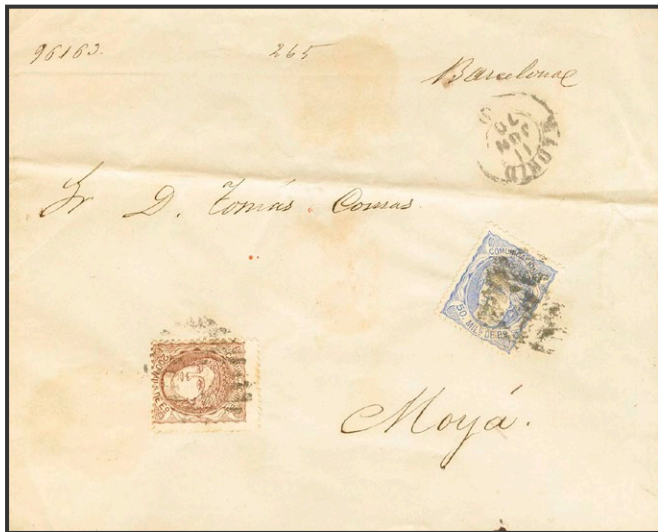 96163. 265
Barcelona
MADRID 11 JUN 70
Sr D. Tomás Comas.
COMUNICACIONES
50. MILS DE Eº
MILS DE Eº
Moyá.